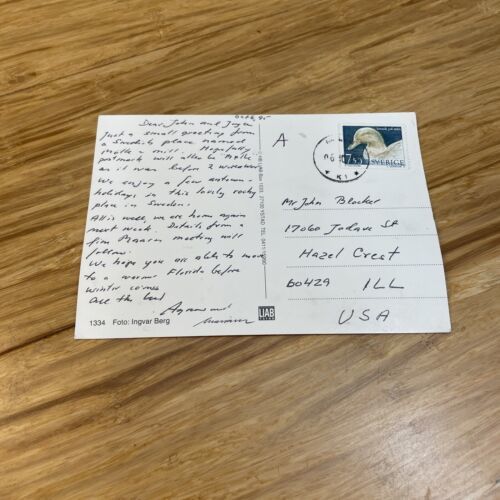 Oct 6, 95
Dear John and Joyce
Just a small greeting from
a Swedish place named
Mölle a mill. Hopefully
potmark will also be Mölle
as it was before 2
We enjoy a few autumn-
holidays in this lovely rocky
place in Sweden.
All is well, we are home again
next week. Details from a
fine meeting will
follow.
We hope you are able to move
to a warmer Florida before
winter comes
All the best
1334 Foto: Ingvar Berg
LIAB
A
7,50
SVERIGE
Mr John Blocker
17060 Jodave St
Hazel Crest
60429 ILL
USA